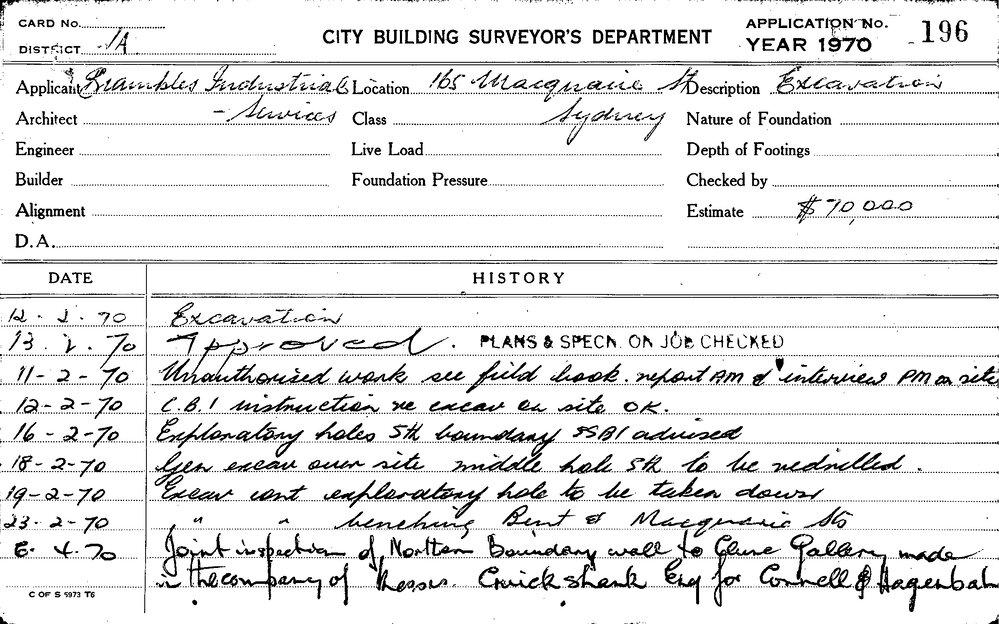 CARD No.
DISTRICT 1A
CITY BUILDING SURVEYOR'S DEPARTMENT
APPLICATION No. 196
YEAR 1970
Applicant Brambles Industrial Location 165 Macquarie St Description Excavation
Architect - Services Class Sydney Nature of Foundation
Engineer Live Load Depth of Footings
Builder Foundation Pressure Checked by
Alignment Estimate $70,000
D.A.
DATE HISTORY
12. 2. 70 Excavation
13. 2. 70 Approved. PLANS & SPECN. ON JOB CHECKED
11-2-70 Unauthorised work see field book. report AM & interview PM on site
12-2-70 C.B.I instruction re excav on site OK.
16-2-70 Exploratory holes Sth boundary SSBI advised
18-2-70 Gen excav over site middle hole Sth to be redrilled.
19-2-70 Excav cont exploratory hole to be taken down
23-2-70 " " benching Bent & Macquarie Sts
6. 4. 70 Joint inspection of Northern Boundary wall to Clune Gallery made
in the company of Messrs. Cruickshank Esq for Connell & Hagenbah
C OF S 5973 T6